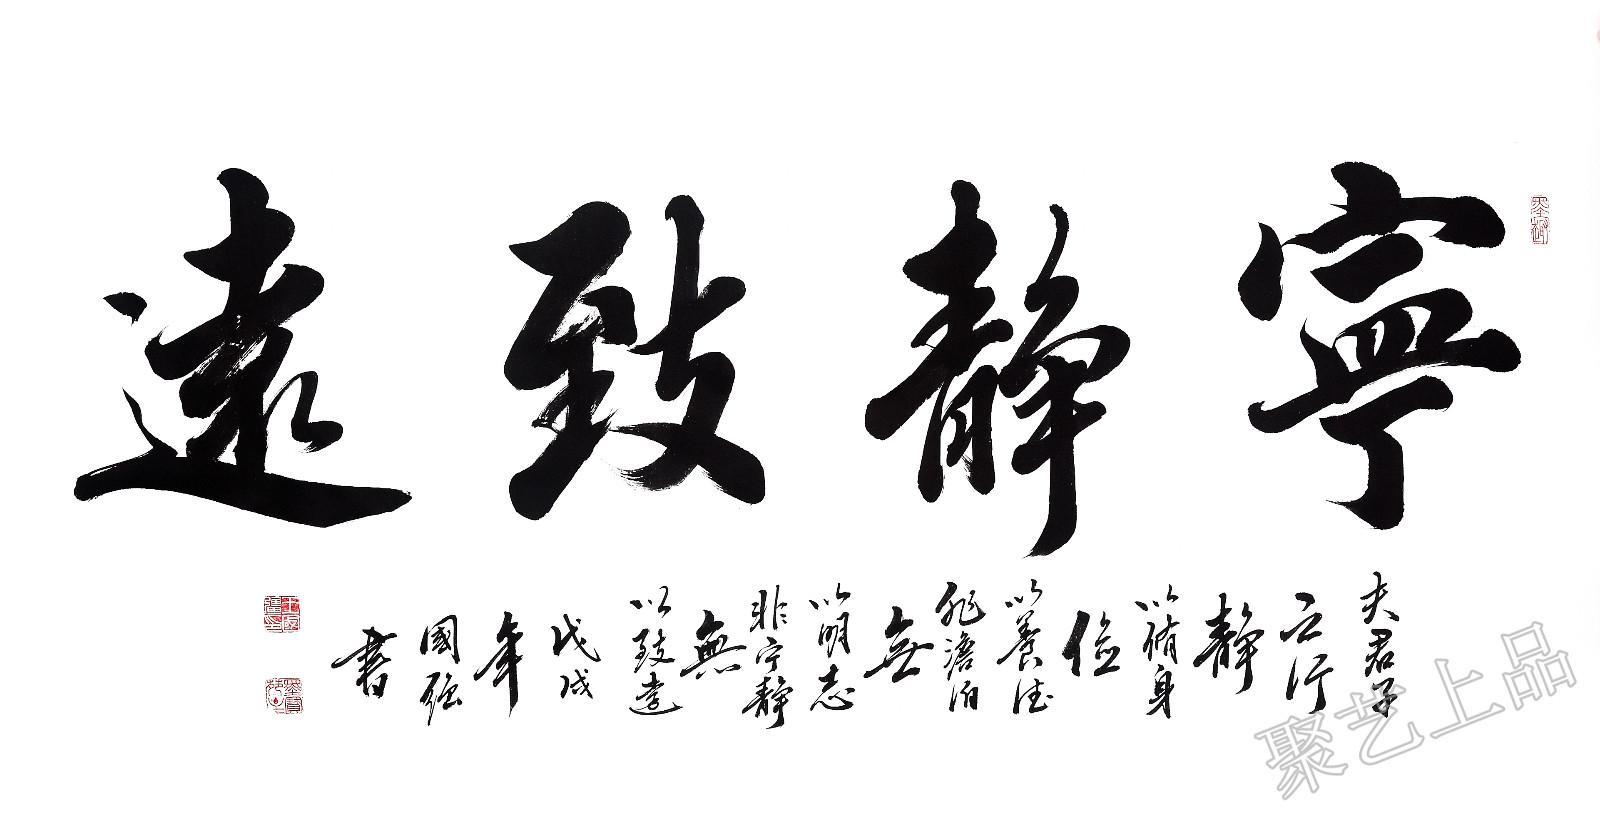 寧静致遠
夫君子
之行
静
以脩身
俭
以養德
非澹泊
無
以明志
非宁静
無
以致遠
戊戌
年
國强
書
聚艺上品